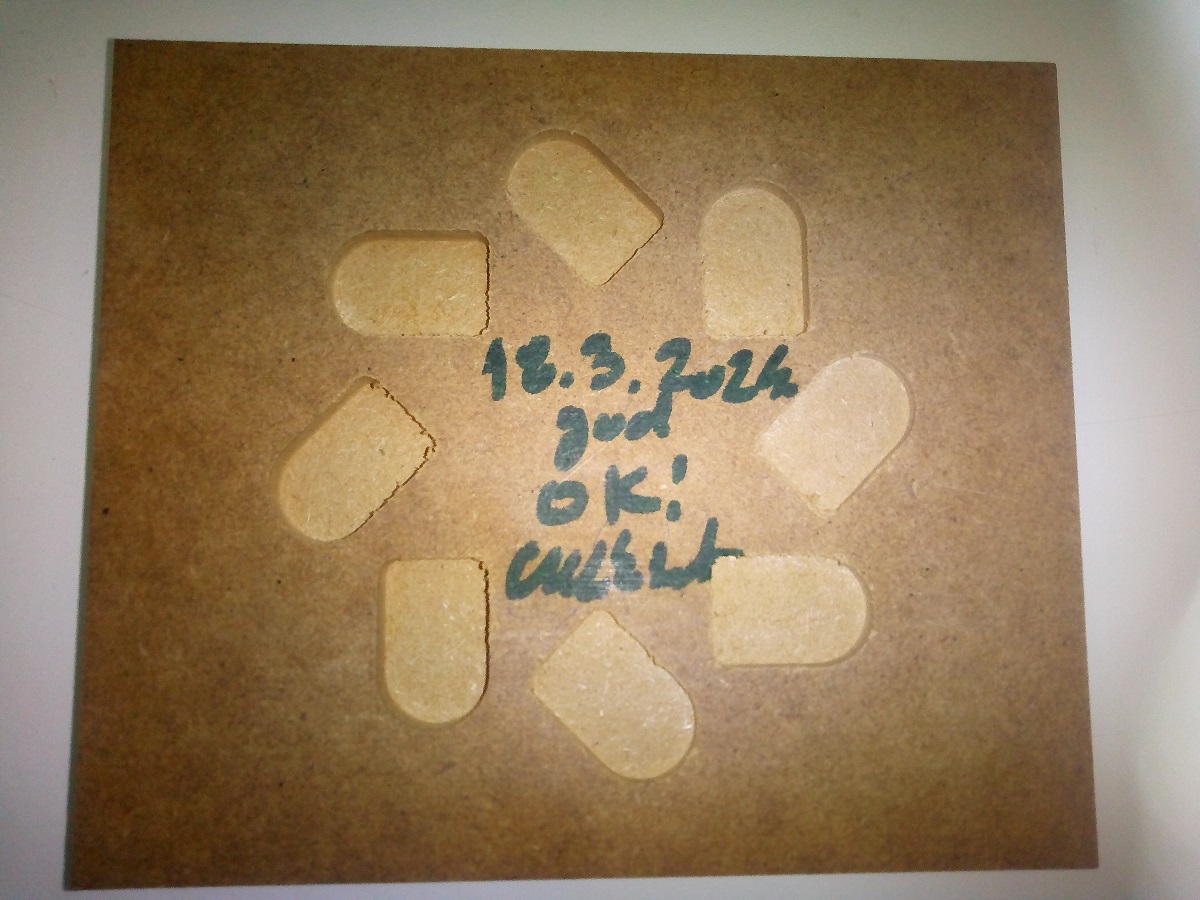 18.3.2024
god
OK!